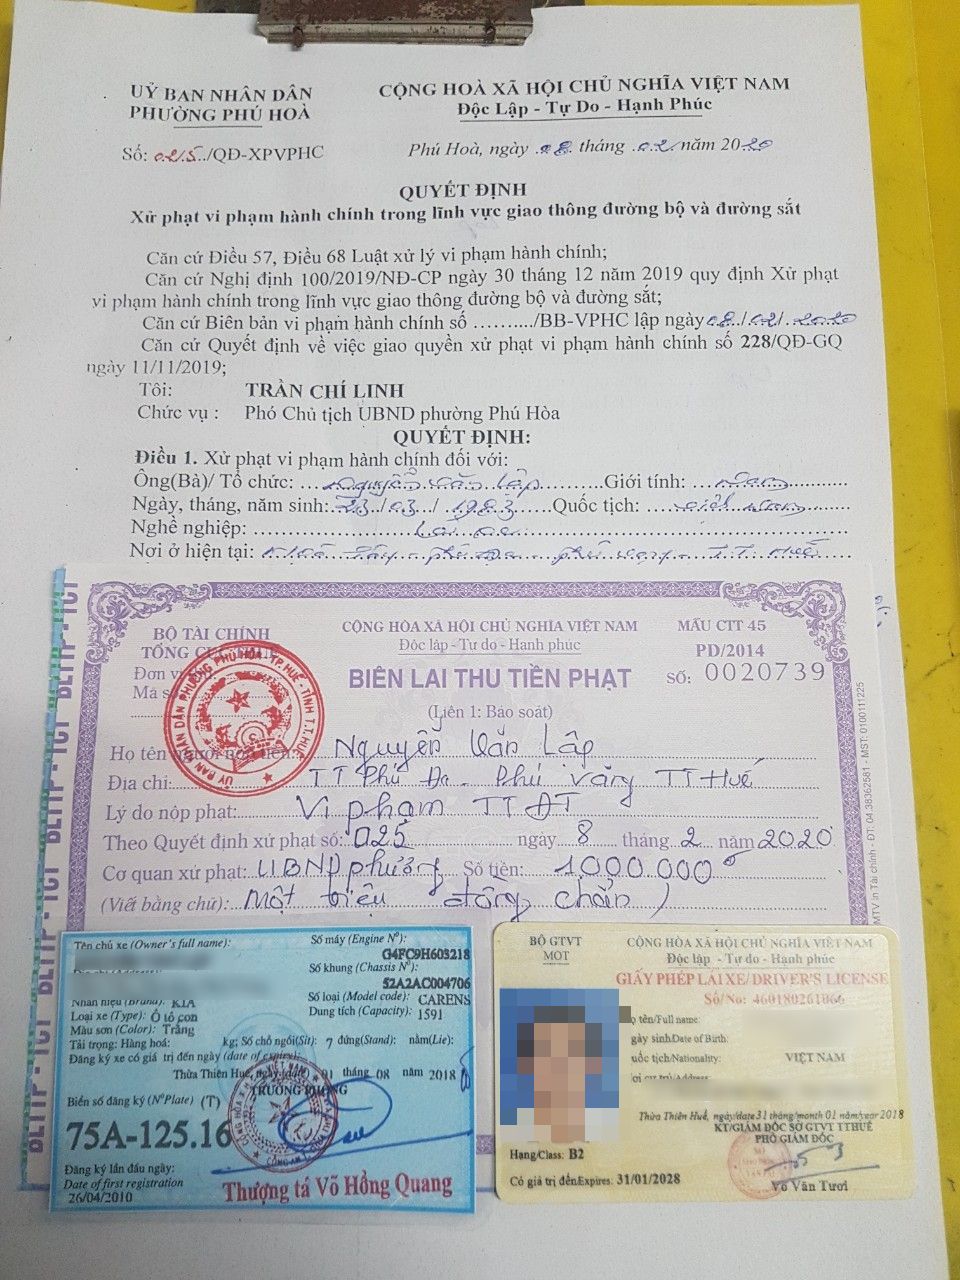 UỶ BAN NHÂN DÂN
PHƯỜNG PHÚ HOÀ
CỘNG HOÀ XÃ HỘI CHỦ NGHĨA VIỆT NAM
Độc Lập - Tự Do - Hạnh Phúc
Số: 025/QĐ-XPVPHC
Phú Hoà, ngày 08 tháng 02 năm 2020
QUYẾT ĐỊNH
Xử phạt vi phạm hành chính trong lĩnh vực giao thông đường bộ và đường sắt
Căn cứ Điều 57, Điều 68 Luật xử lý vi phạm hành chính;
Căn cứ Nghị định 100/2019/NĐ-CP ngày 30 tháng 12 năm 2019 quy định Xử phạt
vi phạm hành chính trong lĩnh vực giao thông đường bộ và đường sắt;
Căn cứ Biên bản vi phạm hành chính số ........../BB-VPHC lập ngày 08/02/2020
Căn cứ Quyết định về việc giao quyền xử phạt vi phạm hành chính số 228/QĐ-GQ
ngày 11/11/2019;
Tôi: TRẦN CHÍ LINH
Chức vụ : Phó Chủ tịch UBND phường Phú Hòa
QUYẾT ĐỊNH:
Điều 1. Xử phạt vi phạm hành chính đối với:
Ông(Bà)/ Tổ chức: Nguyễn Văn Lập Giới tính: Nam
Ngày, tháng, năm sinh: 23/03/1983 Quốc tịch: Việt Nam
Nghề nghiệp: Lái xe
Nơi ở hiện tại: Phú Đa Phú Vang T.T Huế
BLTTP - TCT
BỘ TÀI CHÍNH
TỔNG CỤC THUẾ
CỘNG HÒA XÃ HỘI CHỦ NGHĨA VIỆT NAM
Độc lập - Tự do - Hạnh phúc
MẪU CTT 45
PD/2014
Đơn vị
Mã số
BIÊN LAI THU TIỀN PHẠT
SỐ: 0020739
(Liên 1: Báo soát)
ỦY BAN NHÂN DÂN PHƯỜNG PHÚ HÒA - TP. HUẾ - TỈNH T.T. HUẾ
Họ tên người nộp tiền: Nguyễn Văn Lập
Địa chỉ: TT Phú Đa - Phú Vang TT Huế
Lý do nộp phạt: Vi phạm TTĐT
Theo Quyết định xử phạt số: 025 ngày 8 tháng 2 năm 2020
Cơ quan xử phạt: UBND phường Số tiền: 1.000.000đ
(Viết bằng chữ): Một triệu đồng chẵn
MTV in Tài chính - ĐT: 04.38362581 - MST: 0100111225
Tên chủ xe (Owner's full name):
Số máy (Engine Nº):
G4FC9H603218
Số khung (Chassis Nº):
52A2AC004706
Nhãn hiệu (Brand): KIA
Số loại (Model code): CARENS
Loại xe (Type): Ô tô con
Dung tích (Capacity): 1591
Màu sơn (Color): Trắng
Tải trọng: Hàng hoá: kg; Số chỗ ngồi(Sit): 7 đứng(Stand): nằm(Lie):
Đăng ký xe có giá trị đến ngày (date of expire)
Thừa Thiên Huế, ngày 01 tháng 08 năm 2018
TRƯỞNG PHÒNG
Biển số đăng ký (NºPlate) (T)
75A-125.16
Đăng ký lần đầu ngày:
Date of first registration
26/04/2010
Thượng tá Võ Hồng Quang
BỘ GTVT
MOT
CỘNG HÒA XÃ HỘI CHỦ NGHĨA VIỆT NAM
Độc lập - Tự do - Hạnh phúc
GIẤY PHÉP LÁI XE/DRIVER'S LICENSE
Số/No: 460180261066
Họ tên/Full name:
Ngày sinh/Date of Birth:
Quốc tịch/Nationality: VIỆT NAM
Nơi cư trú/Address:
Thừa Thiên Huế, ngày/date 31 tháng/month 01 năm/year 2018
KT/GIÁM ĐỐC SỞ GTVT TTHUẾ
PHÓ GIÁM ĐỐC
Hạng/Class: B2
Có giá trị đến/Expires: 31/01/2028
Võ Văn Tươi